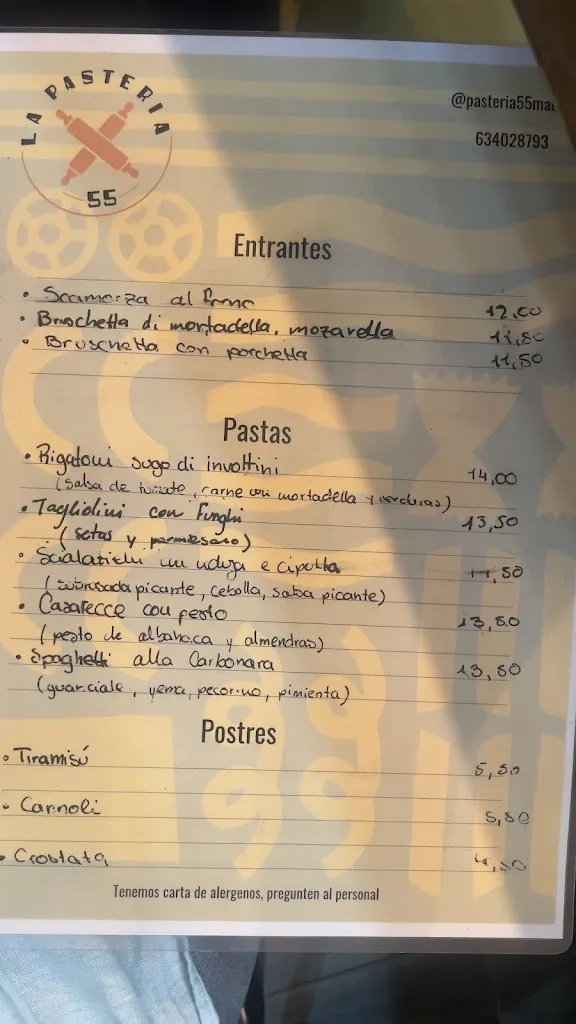 LA PASTERIA
55
@pasteria55ma
634028793
Entrantes
• Scamorza al forno 12,00
• Bruschetta di mortadella, mozarella 11,50
• Bruschetta con porchetta 11,50
Pastas
• Rigatoni sugo di involtini 14,00
(salsa de tomate, carne con mortadella y verduras)
• Tagliolini con Funghi 13,50
(setas y parmesano)
• Scialatielli con nduja e cipolla 14,50
(sobrasada picante, cebolla, salsa picante)
• Casarecce con pesto 13,50
(pesto de albahaca y almendras)
• Spaghetti alla Carbonara 13,50
(guanciale, yema, pecorino, pimienta)
Postres
• Tiramisú 5,50
• Cannoli 5,50
• Crostata
Tenemos carta de alergenos, pregunten al personal